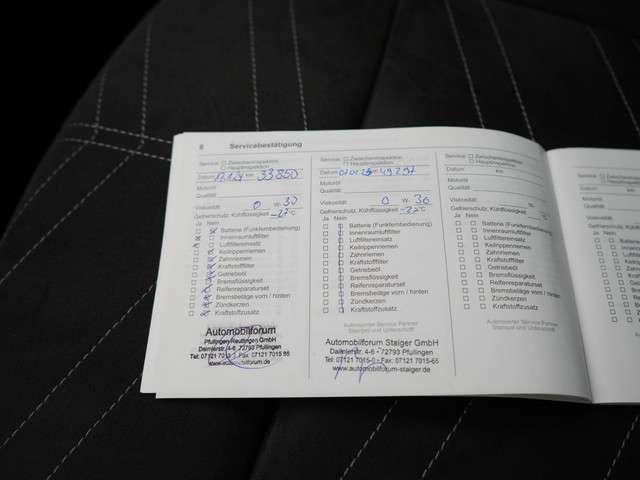 8 Servicebestätigung
Service: Zwischeninspektion
Hauptinspektion
Datum km 33850
Motoröl
Qualität:
Viskosität 0 W- 30
Gefrierschutz, Kühlflüssigkeit -27 °C
Ja Nein
Batterie (Funkfernbedienung)
Innenraumluftfilter
Luftfiltereinsatz
Keilrippenriemen
Zahnriemen
Kraftstofffilter
Getriebeöl
Bremsflüssigkeit
Reifenreparaturset
Bremsbeläge vorn / hinten
Zündkerzen
Kraftstoffzusatz
Automobilforum
Pfullingen Reutlingen GmbH
Daimlerstr. 4-6 72793 Pfullingen
Tel: 07121 7015-0 Fax: 07121 7015 65
www.automobilforum.de
Service: Zwischeninspektion
Hauptinspektion
Datum km
Motoröl
Qualität:
Viskosität 0 W- 30
Gefrierschutz, Kühlflüssigkeit -27 °C
Ja Nein
Batterie (Funkfernbedienung)
Innenraumluftfilter
Luftfiltereinsatz
Keilrippenriemen
Zahnriemen
Kraftstofffilter
Getriebeöl
Bremsflüssigkeit
Reifenreparaturset
Bremsbeläge vorn / hinten
Zündkerzen
Kraftstoffzusatz
Autorisierter Service Partner
Stempel und Unterschrift
Automobilforum Staiger GmbH
Daimlerstr. 4-6 - 72793 Pfullingen
Tel: 07121 7015-0 - Fax: 07121 7015-65
www.automobilforum-staiger.de
Service: Zwischeninspektion
Hauptinspektion
Datum km
Motoröl
Qualität:
Viskosität W-
Gefrierschutz, Kühlflüssigkeit °C
Ja Nein
Batterie (Funkfernbedienung)
Innenraumluftfilter
Luftfiltereinsatz
Keilrippenriemen
Zahnriemen
Kraftstofffilter
Getriebeöl
Bremsflüssigkeit
Reifenreparaturset
Bremsbeläge vorn / hinten
Zündkerzen
Kraftstoffzusatz
Autorisierter Service Partner
Stempel und Unterschrift
Service:
Datum
Motoröl
Qualität:
Viskosität
Gefrierschutz, Kühl
Ja Nein